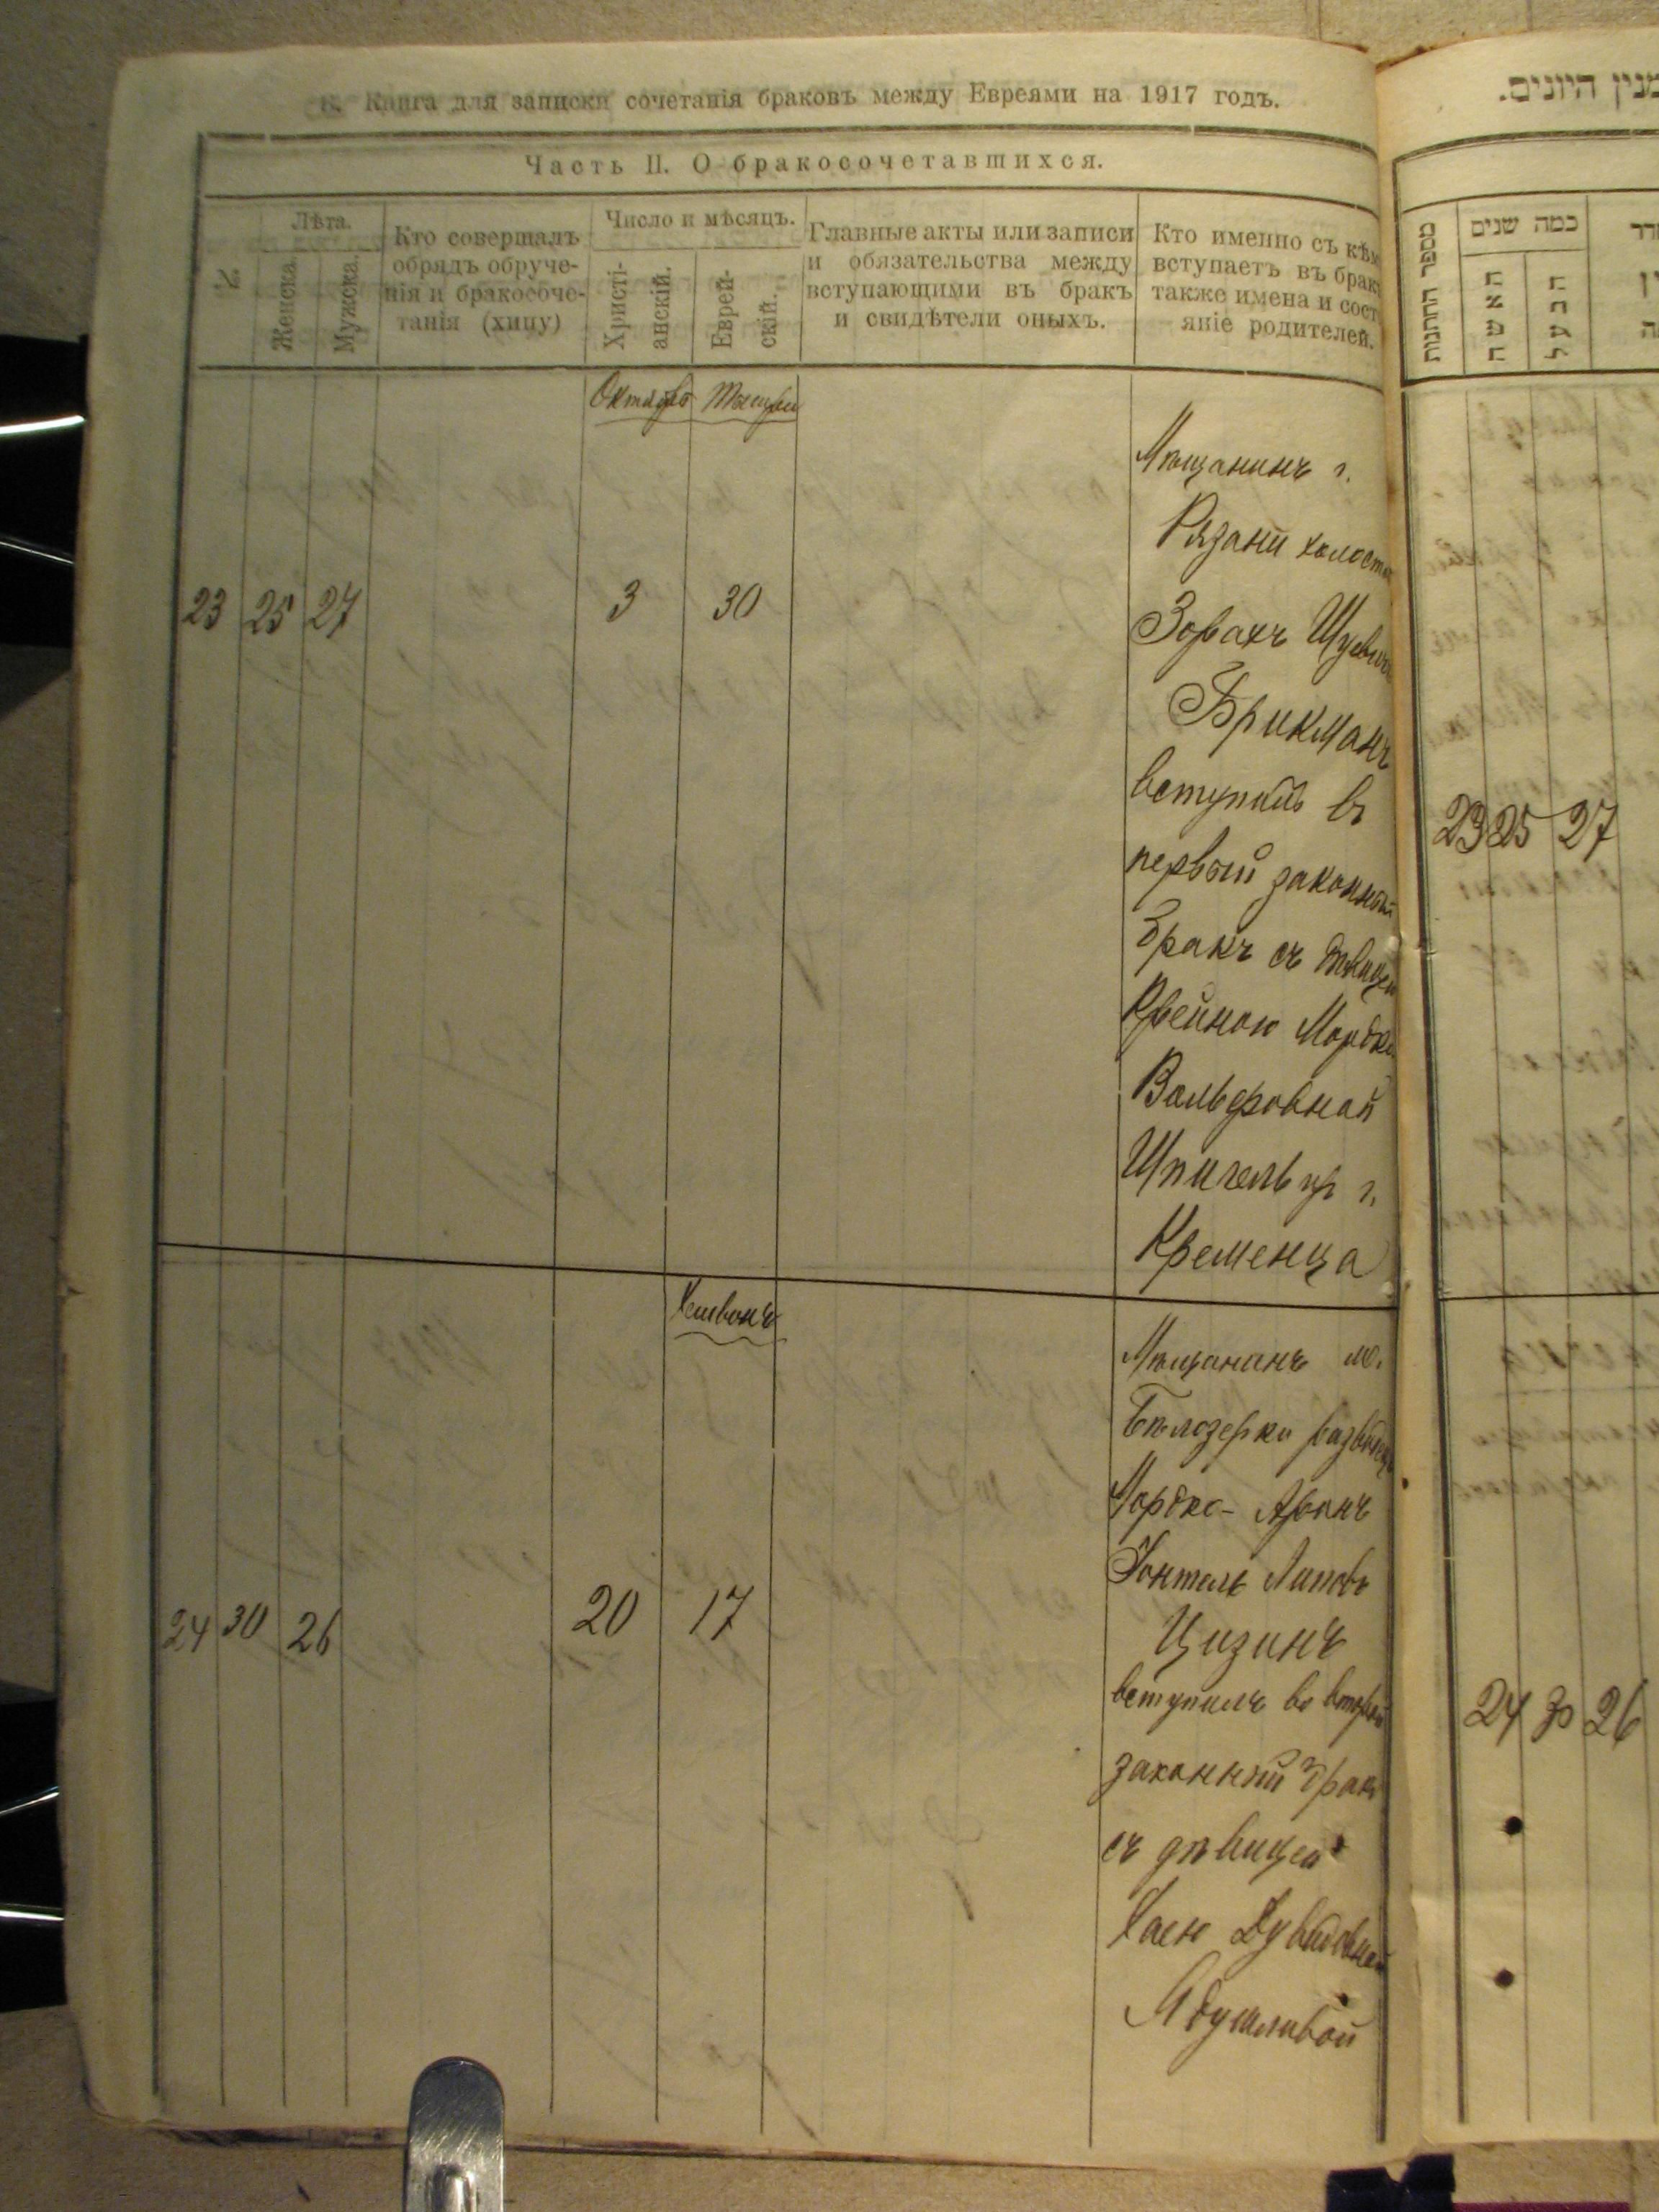 Книга для записки сочетанія браковъ между Евреями на 1917 годъ.
Часть II. О бракосочетавшихся.
№
Лѣта.
Женска.
Мужска.
Кто совершалъ
обрядъ обруче-
нія и бракосоче-
танія (хипу)
Число и мѣсяцъ.
Христі-
анскій.
Еврей-
скій.
Главные акты или записи
и обязательства между
вступающими въ бракъ
и свидѣтели оныхъ.
Кто именно съ кѣм
вступаетъ въ брак
также имена и сост
яніе родителей.
Октябрь Тышри
23 25 27 3 30
Мѣщанинъ г.
Рязани холост
Зорахъ
Брикманъ
вступилъ въ
первый законный
бракъ съ дѣвицей
Рейною Мордко
Вольфовной
Шпигель пр г.
Кременца
Хешванъ
24 30 26 20 17
Мѣщанинъ м.
Бѣлозерки
Мордко-Аронъ
Липовъ
Цизинъ
вступилъ во второй
законный брак
съ дѣвицей
Хаею Дувидовной
מנין היונים.
מספר החתנות
כמה שנים
האשה
הבעל
23 25 27
24 30 26